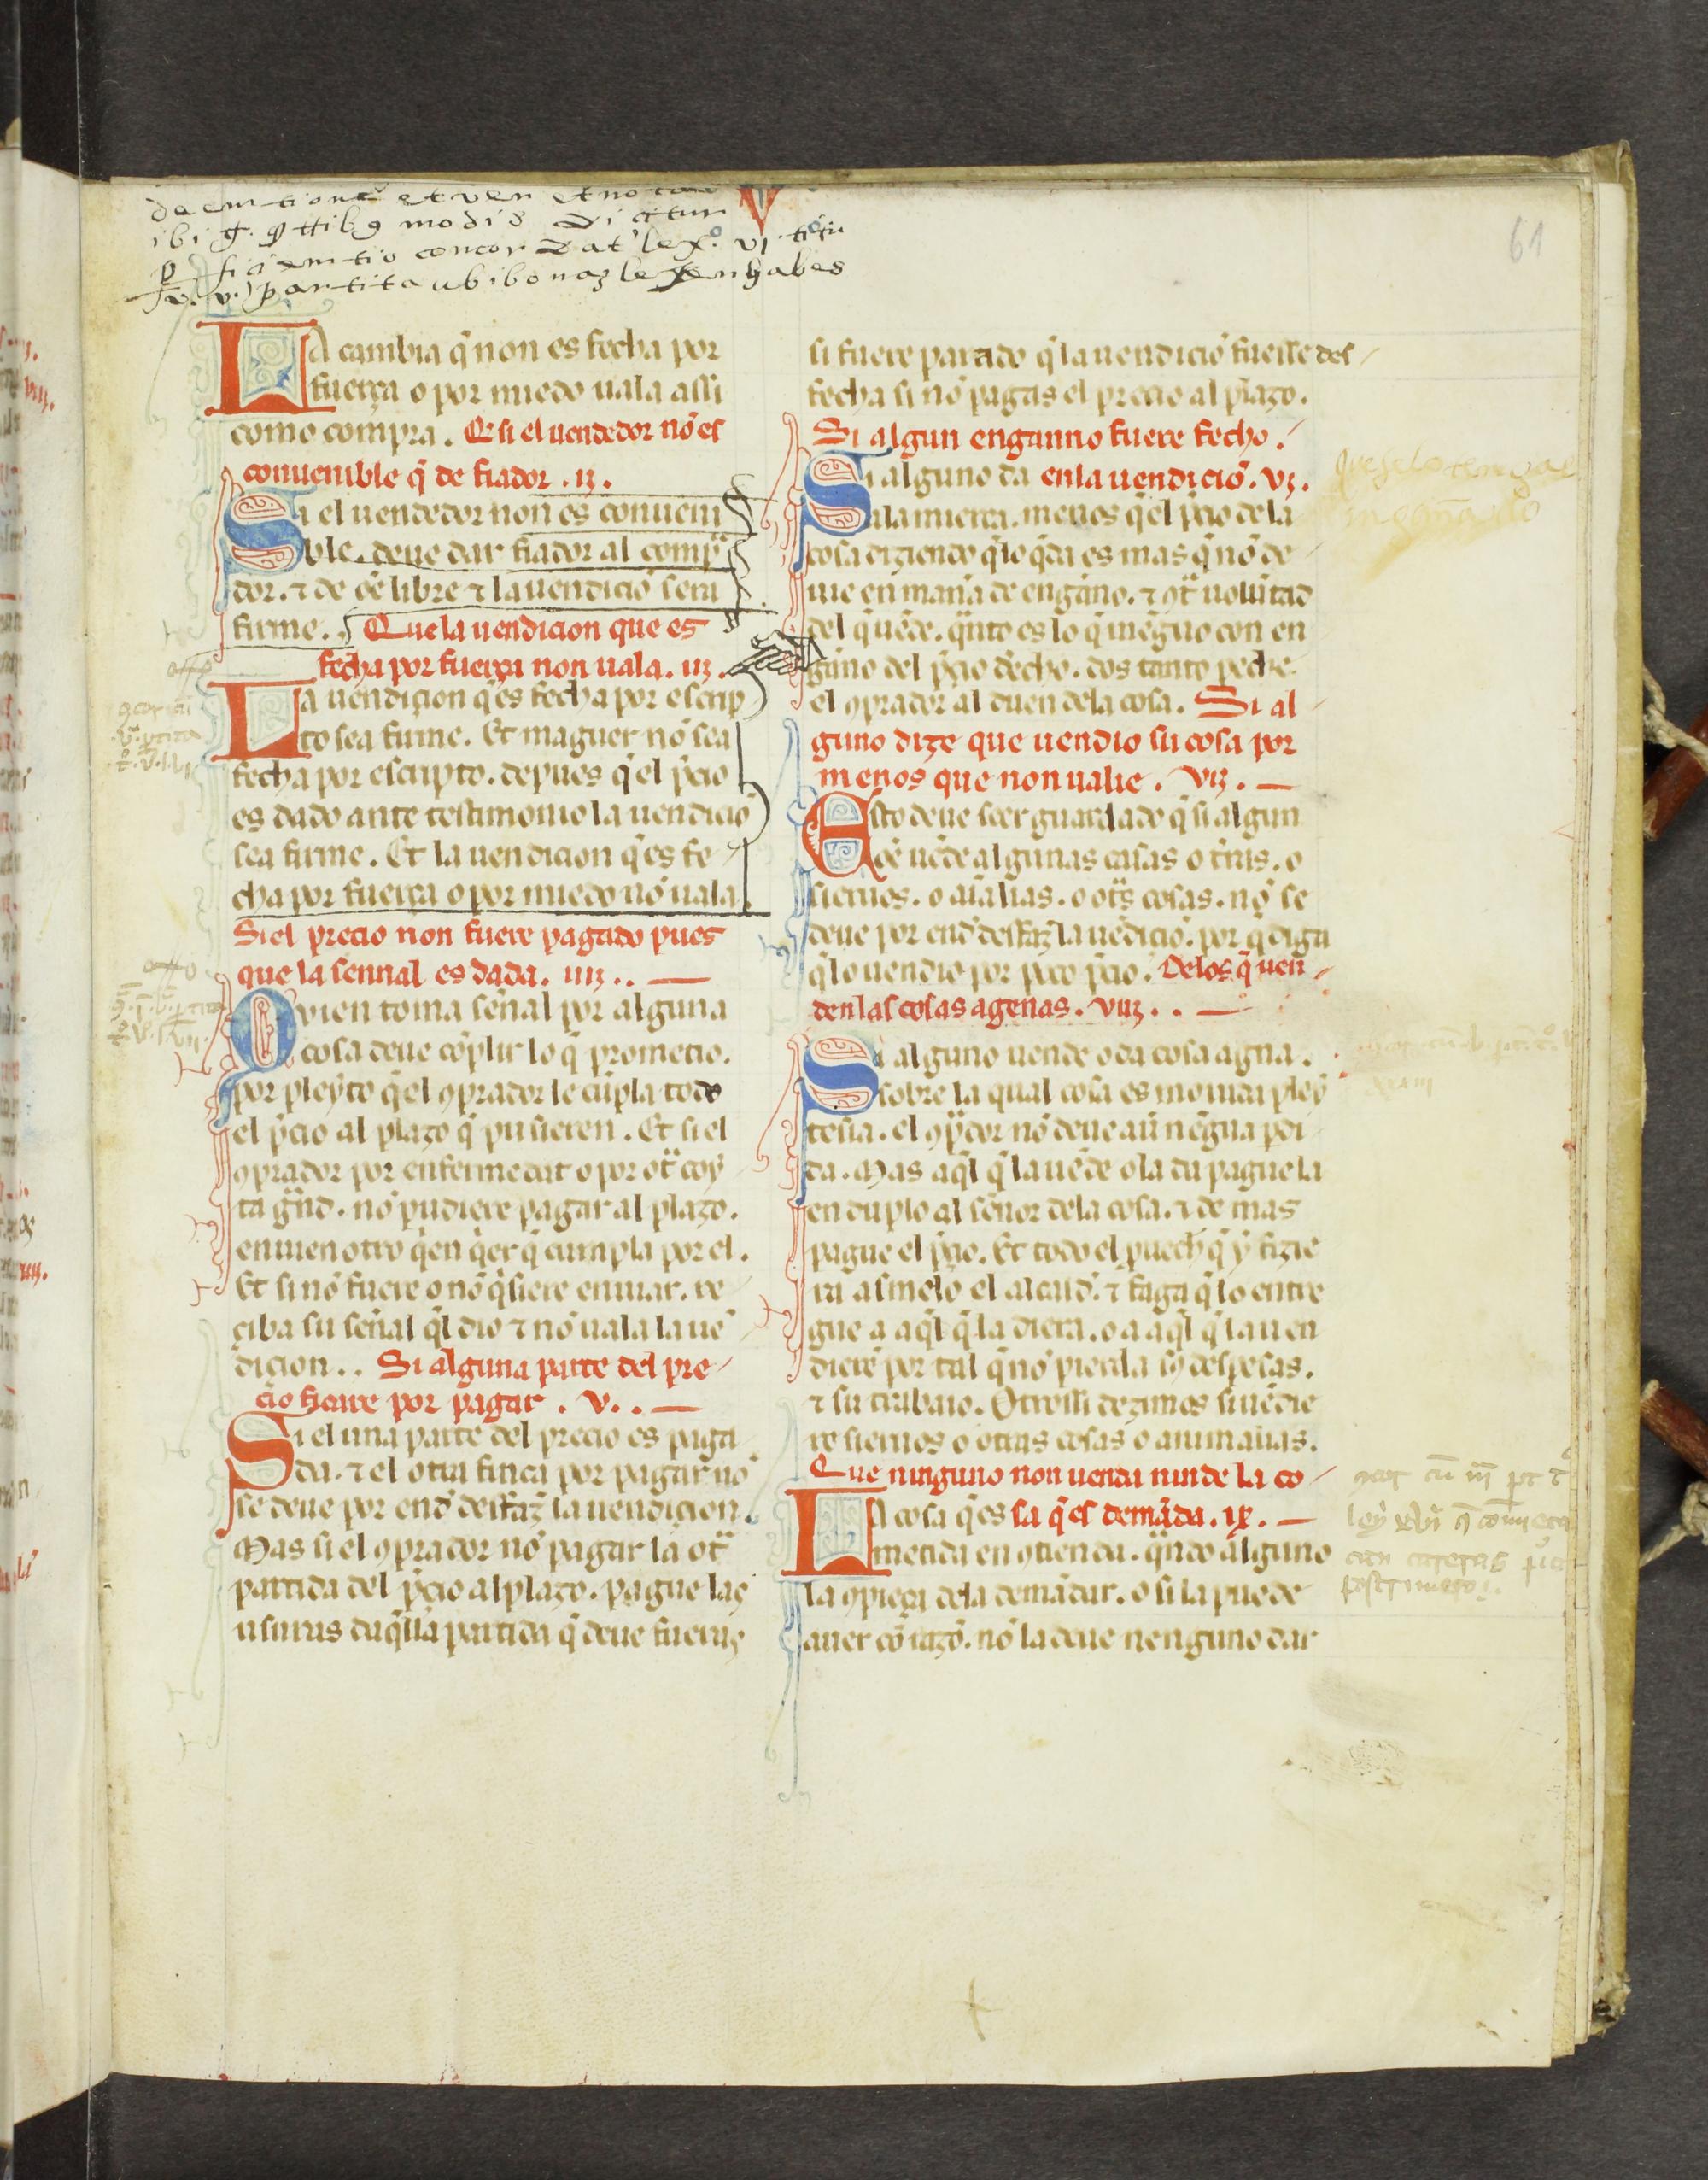 de emtione et ven et nota
ibi g. q̃ttibꝰ modis dicitur
ꝑficiemtio concordat lex.º vi. titu
v. v. partita ubi bonaʒ legem habes
61
LA cambia q̃ non es fecha por
fuerça o por miedo uala assi
como compra. Q̃ si el uendedor nõ es
conuenible q̃ de fiador .ii.
Si el uendedor non es conueni
ble. deue dar fiador al comp̃ª
dor. ⁊ de õe libre ⁊ la uendiciõ sera
firme. Que la uendicion que es
fecha por fuerça non uala. iii.
La uendicion q̃ es fecha por escrip
to sea firme. Et maguer nõ sea
fecha por escripto. depues q̃ el p̃cio
es dado ante testimonio la uendiciõ
sea firme. Et la uendicion q̃ es fe
cha por fuerça o por miedo nõ uala.
Si el precio non fuere pagado pues
que la sennal es dada. iiii..
Qvien toma señal por alguna
cosa deue cõplir lo q̃ prometio.
por pleyto q̃ el ꝯprador le cũpla todo
el p̃cio al plazo q̃ pusieren. Et si el
ꝯprador por enfermedat o por otª coy
ta gªnd. nõ pudiere pagar al plazo.
enuien otro q̃en q̃er q̃ cumpla por el.
Et si nõ fuere o nõ q̃siere enuiar. re
ciba su señal q̃l dio ⁊ nõ uala la uẽ
dicion.. Si alguna parte del pre
cio fincare por pagar. V..
Si el una parte del precio es paga
da. ⁊ el otra finca por pagar nõ
se deue por end desfaz̃ la uendicion.
Mas si el ꝯprador nõ pagar la otª
partida del p̃cio al plazo. pague las
usuras daq̃lla partida q̃ deue fueras
si fuere parado q̃ la uendiciõ fuesse des
fecha si nõ pagas el precio al plazo.
Si algun enganno fuere fecho.
Si alguno da en la uendiciõ. vi.
ala muerta. menos q̃ el p̃cio de la
cosa diziendo q̃ lo q̃ da es mas q̃ nõ de
uie en mañã de engãno. ⁊ ꝯtª uolũtad
del q̃ uẽde. qªnto es lo q̃ mẽguo con en
gãno del p̃cio d̃echo. dos tanto peche
el ꝯprador al duen dela cosa. Si al
guno dize que uendio su cosa por
menos que non ualie. vii.
Esto deue seer guardado q̃ si algun
õe uẽde algunas casas o tr̃as. o
sieruos. o aĩalias. o otªs cosas. nõ se
deue por end desfaz̃ la uẽdiciõ. por q̃ diga
q̃ lo uendio por poco p̃cio. Delos q̃ uen
den las cosas agenas. viii..
Si alguno uende o da cosa agẽna.
sobre la qual cosa es mouida pley
tesia. el ꝯp̃dor nõ deue aũ nẽgũa ꝑdi
da. Mas aq̃l q̃ la uẽde o la da pague la
en duplo al señor dela cosa. ⁊ de mas
pague el p̃cio. Et todo el puech q̃ y fizie
ra asmelo el alcald. ⁊ faga q̃ lo entre
gue a aq̃l q̃ la diera. o a aq̃l q̃ la uen
diere por tal q̃ nõ pierda sꝰ despesas.
⁊ su trabaio. Otrossi dezimos si uẽdie
re sieruos o otras cosas o animalias.
Que ninguno non uenda nin de la co
LA cosa q̃ es sa q̃ es demãda. ix.
metida en ꝯtienda. qªndo alguno
la ꝯpieça dela demãdar. o si la puede
auer cõ razõ. nõ la deue nenguno dar